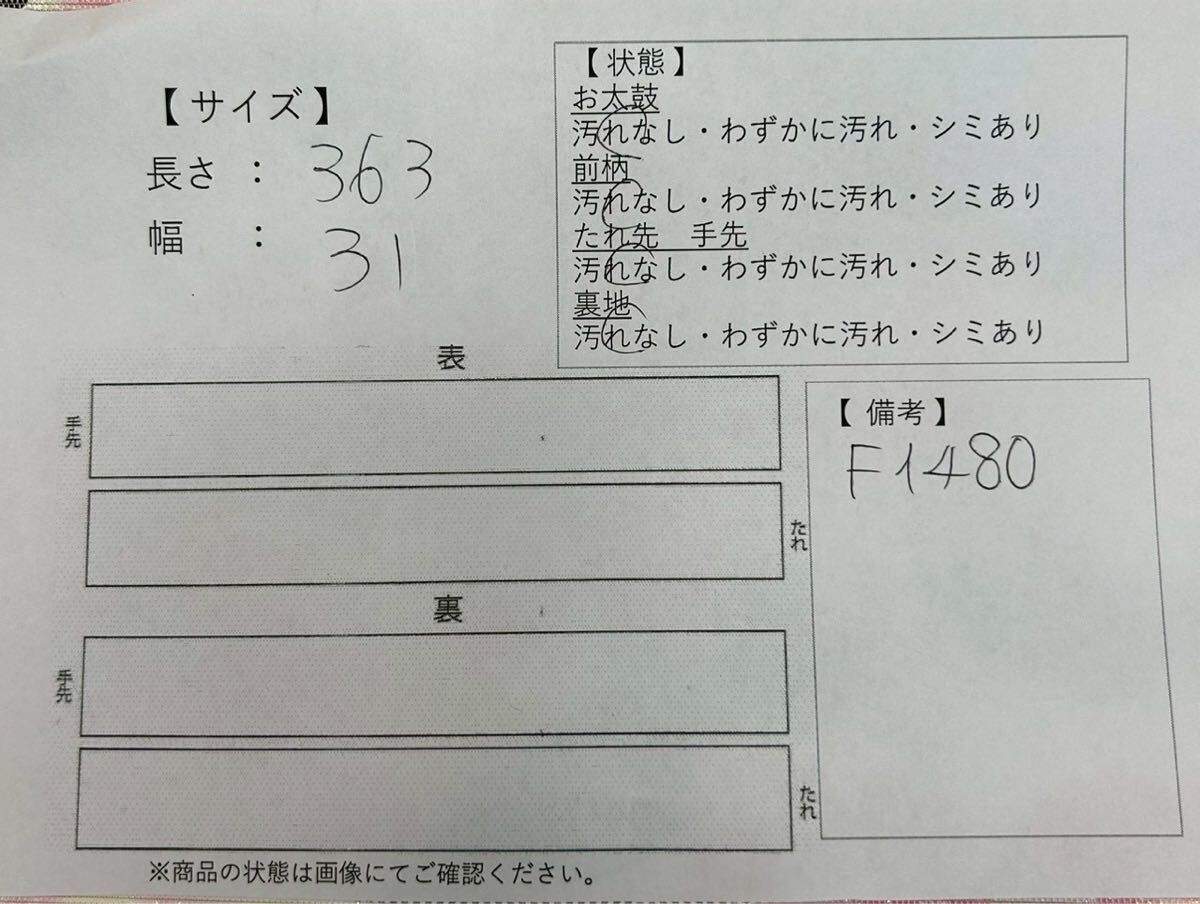 【サイズ】
長さ : 363
幅 : 31
【状態】
お太鼓
汚れなし・わずかに汚れ・シミあり
前柄
汚れなし・わずかに汚れ・シミあり
たれ先 手先
汚れなし・わずかに汚れ・シミあり
裏地
汚れなし・わずかに汚れ・シミあり
表
手先
たれ
裏
手先
たれ
【備考】
F1480
※商品の状態は画像にてご確認ください。